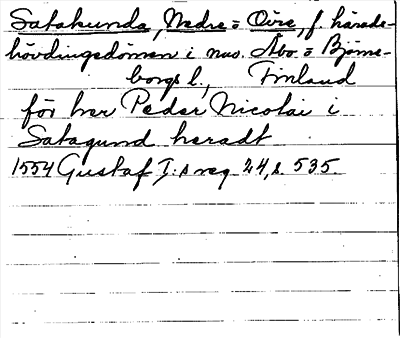 Satakunda, Nedre = Övre, f. härads-
hövdingedömen i nuv. Åbo = Björne-
borgs l., Finland
för her Peder Nicolai i
Satagund heradt
1554 Gustaf I:s reg. 24, s. 535.